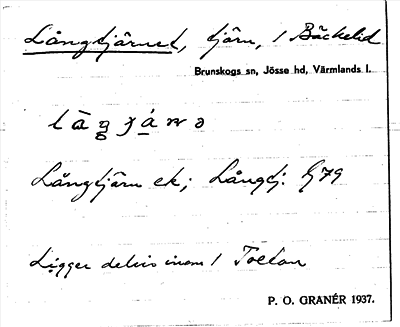 Långtjärnet, tjärn, 1 Bäckelid
Brunskogs sn, Jösse hd, Värmlands l.
Långtjärn ek; Långtj. G79
Ligger delvis inom 1 Toetan
P. O. GRANÉR 1937.